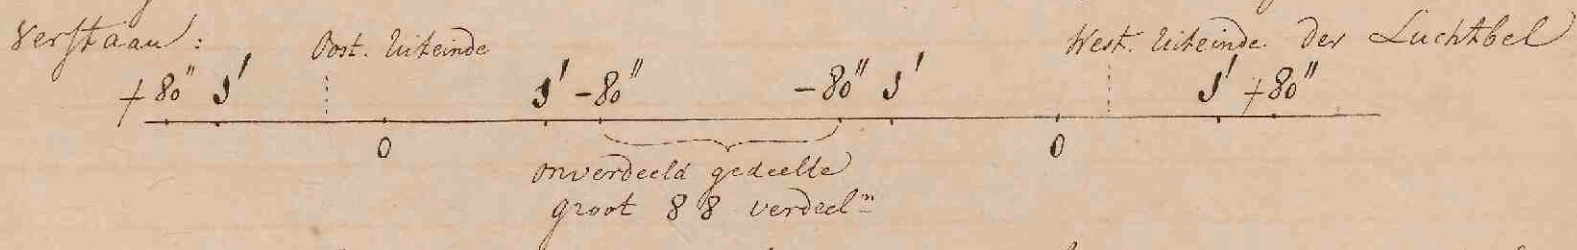 Verstaan:
Oost. Uiteinde
West. Uiteinde der Luchtbel
+80" 1' 1' -80" -80" 1' 1' +80"
0 0
onverdeeld gedeelte
groot 88 verdeeln